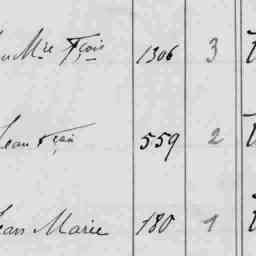 Mre Fçois 1306 3
Jean Fçois 559 2
Jean Marie 180 1